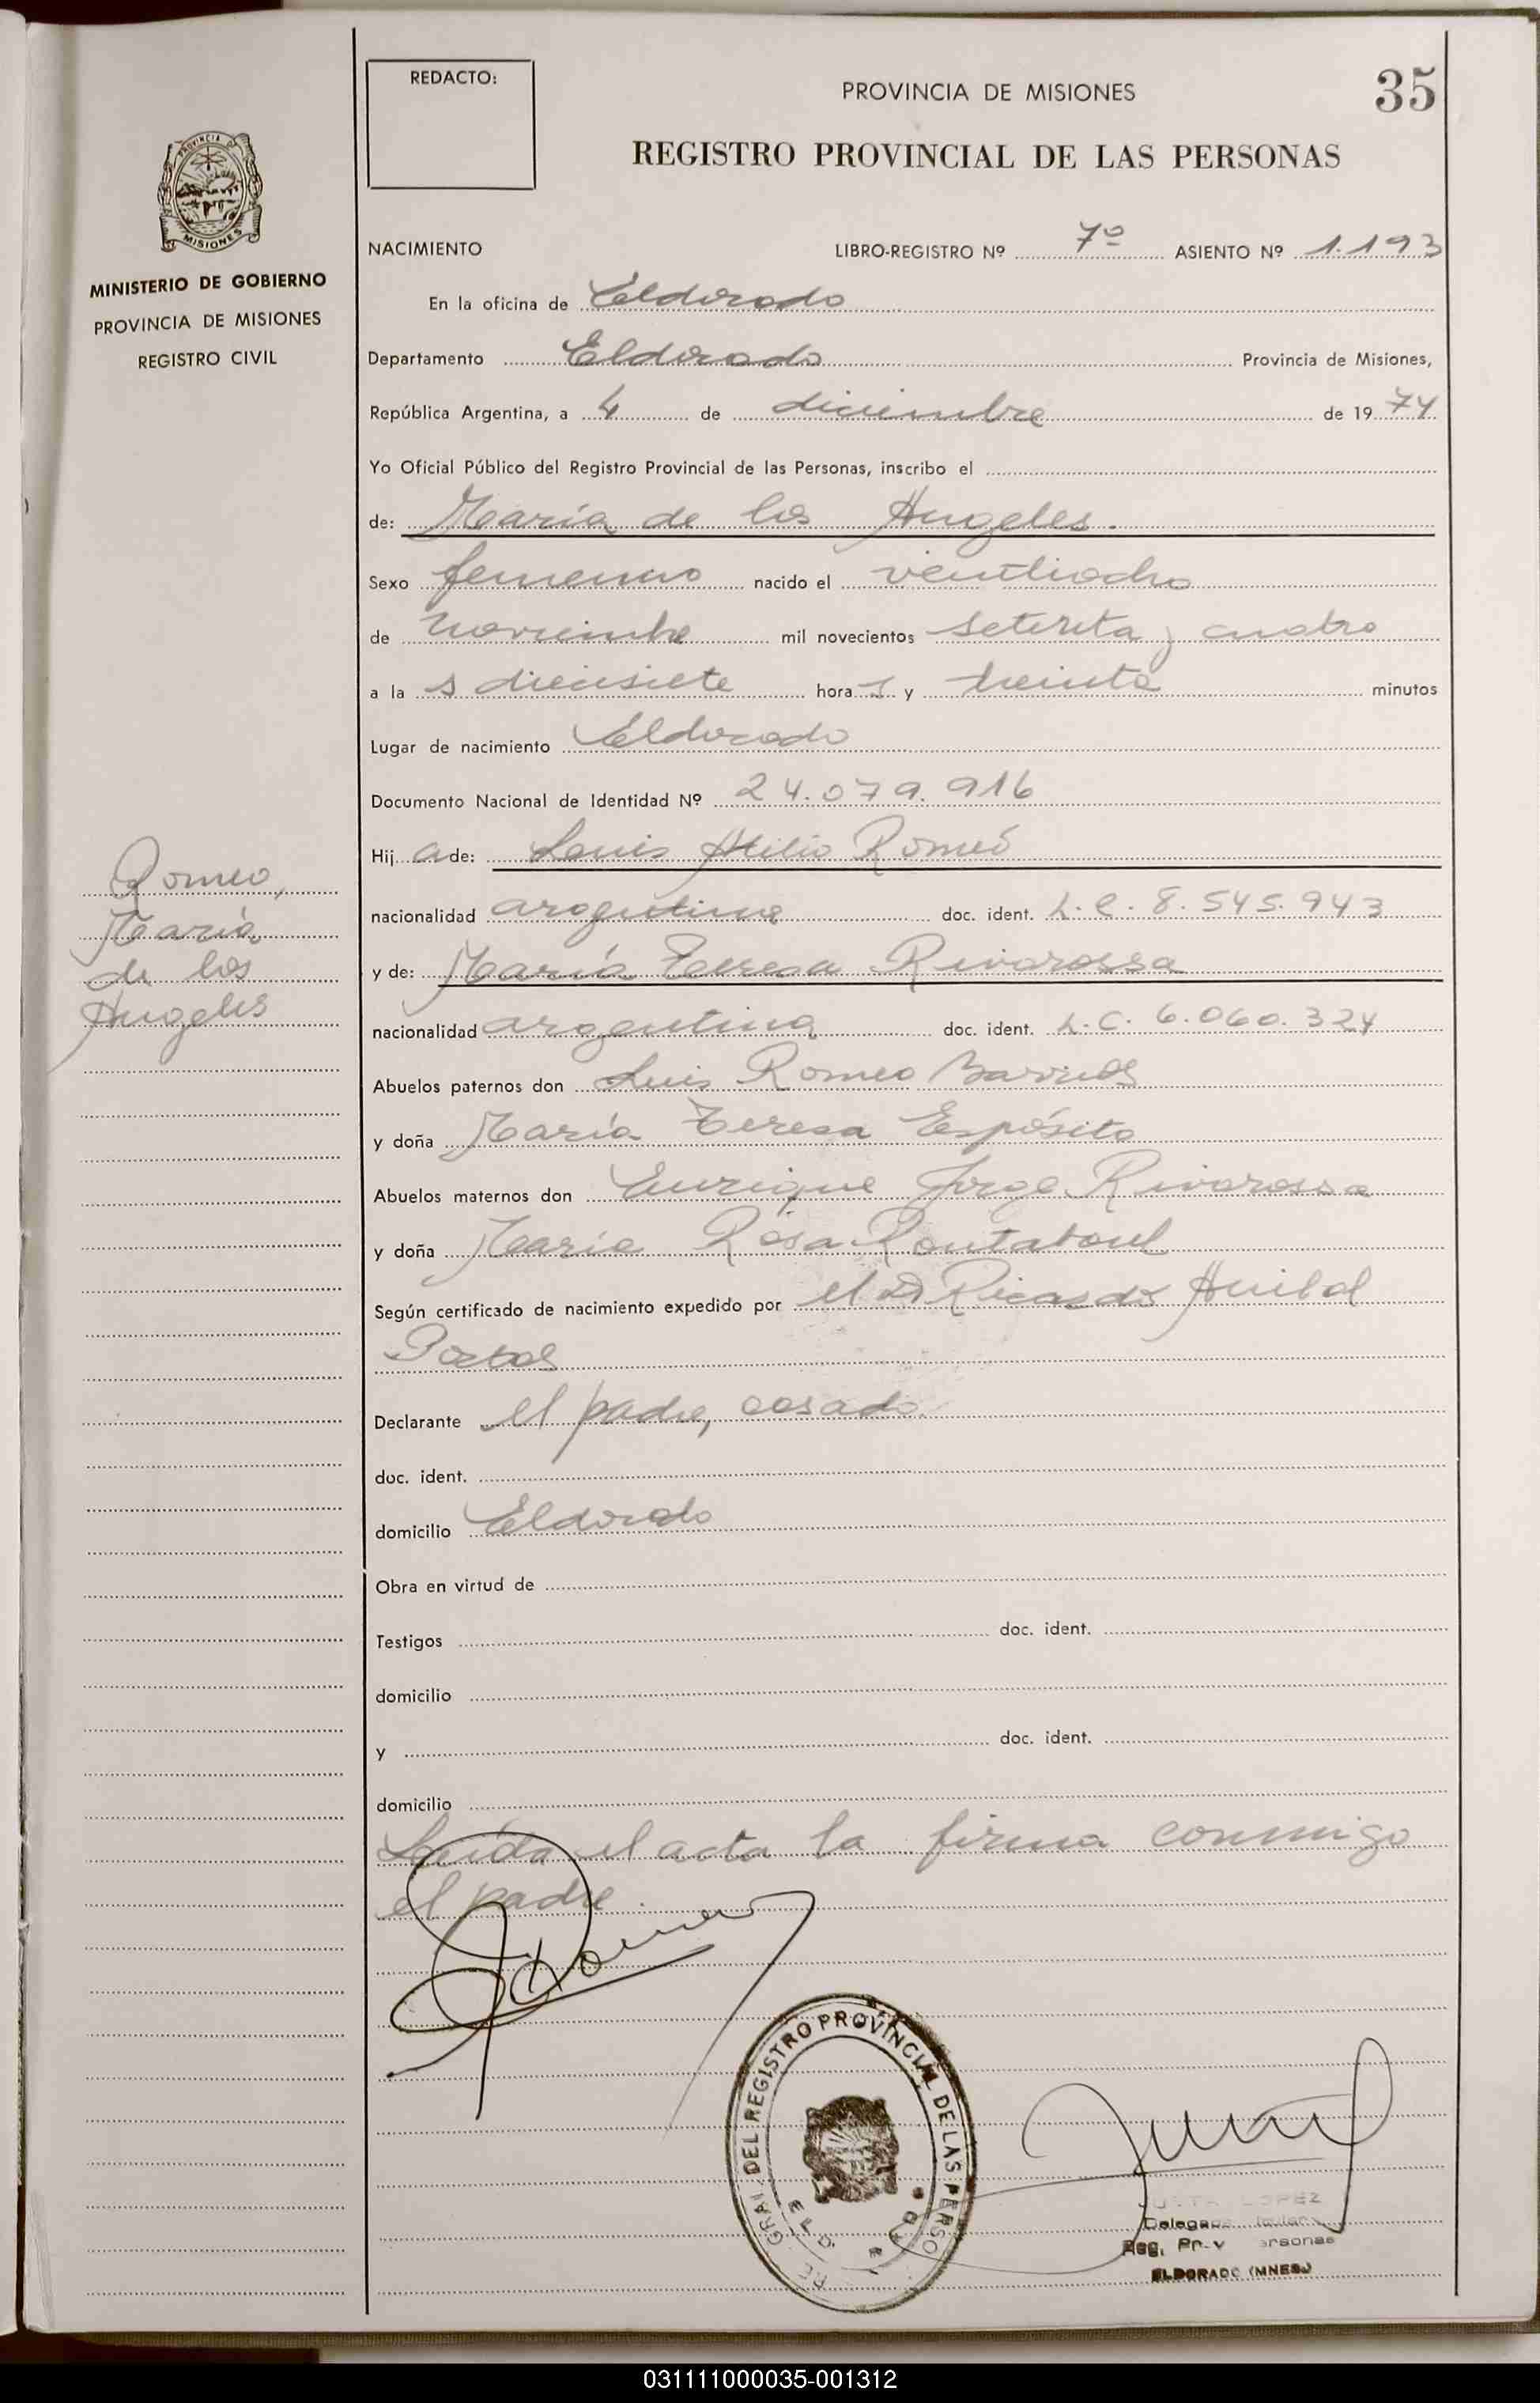 35
REDACTO:
PROVINCIA DE MISIONES
REGISTRO PROVINCIAL DE LAS PERSONAS
PROVINCIA DE
MISIONES
MINISTERIO DE GOBIERNO
PROVINCIA DE MISIONES
REGISTRO CIVIL
NACIMIENTO LIBRO-REGISTRO Nº 7º ASIENTO Nº 1.193
En la oficina de Eldorado
Departamento Eldorado Provincia de Misiones,
República Argentina, a 4 de diciembre de 1974
Yo Oficial Público del Registro Provincial de las Personas, inscribo el
de: María de los Angeles.
Sexo femenino nacido el veintiocho
de noviembre mil novecientos setenta y cuatro
a la s diecisiete hora s y treinta minutos
Lugar de nacimiento Eldorado
Documento Nacional de Identidad Nº 24.079.916
Hij a de: Luis Atilio Romeo
nacionalidad argentina doc. ident. L.E. 8.545.943
y de: María Teresa Rivarossa
nacionalidad argentina doc. ident. L.C. 6.060.324
Abuelos paternos don Luis Romeo
y doña María Teresa Espósito
Abuelos maternos don Enrique Jorge Rivarossa
y doña María Rosa
Según certificado de nacimiento expedido por el Dr Ricardo Anibal
Declarante el padre, casado.
doc. ident.
domicilio Eldorado
Obra en virtud de
Testigos doc. ident.
domicilio
y doc. ident.
domicilio
Leída el acta la firma conmigo
el padre.
Romeo,
María
de los
Angeles
GRAL DEL REGISTRO PROVINCIAL DE LAS PERSO
LOPEZ
ELDORADO (MNES.)
031111000035-001312